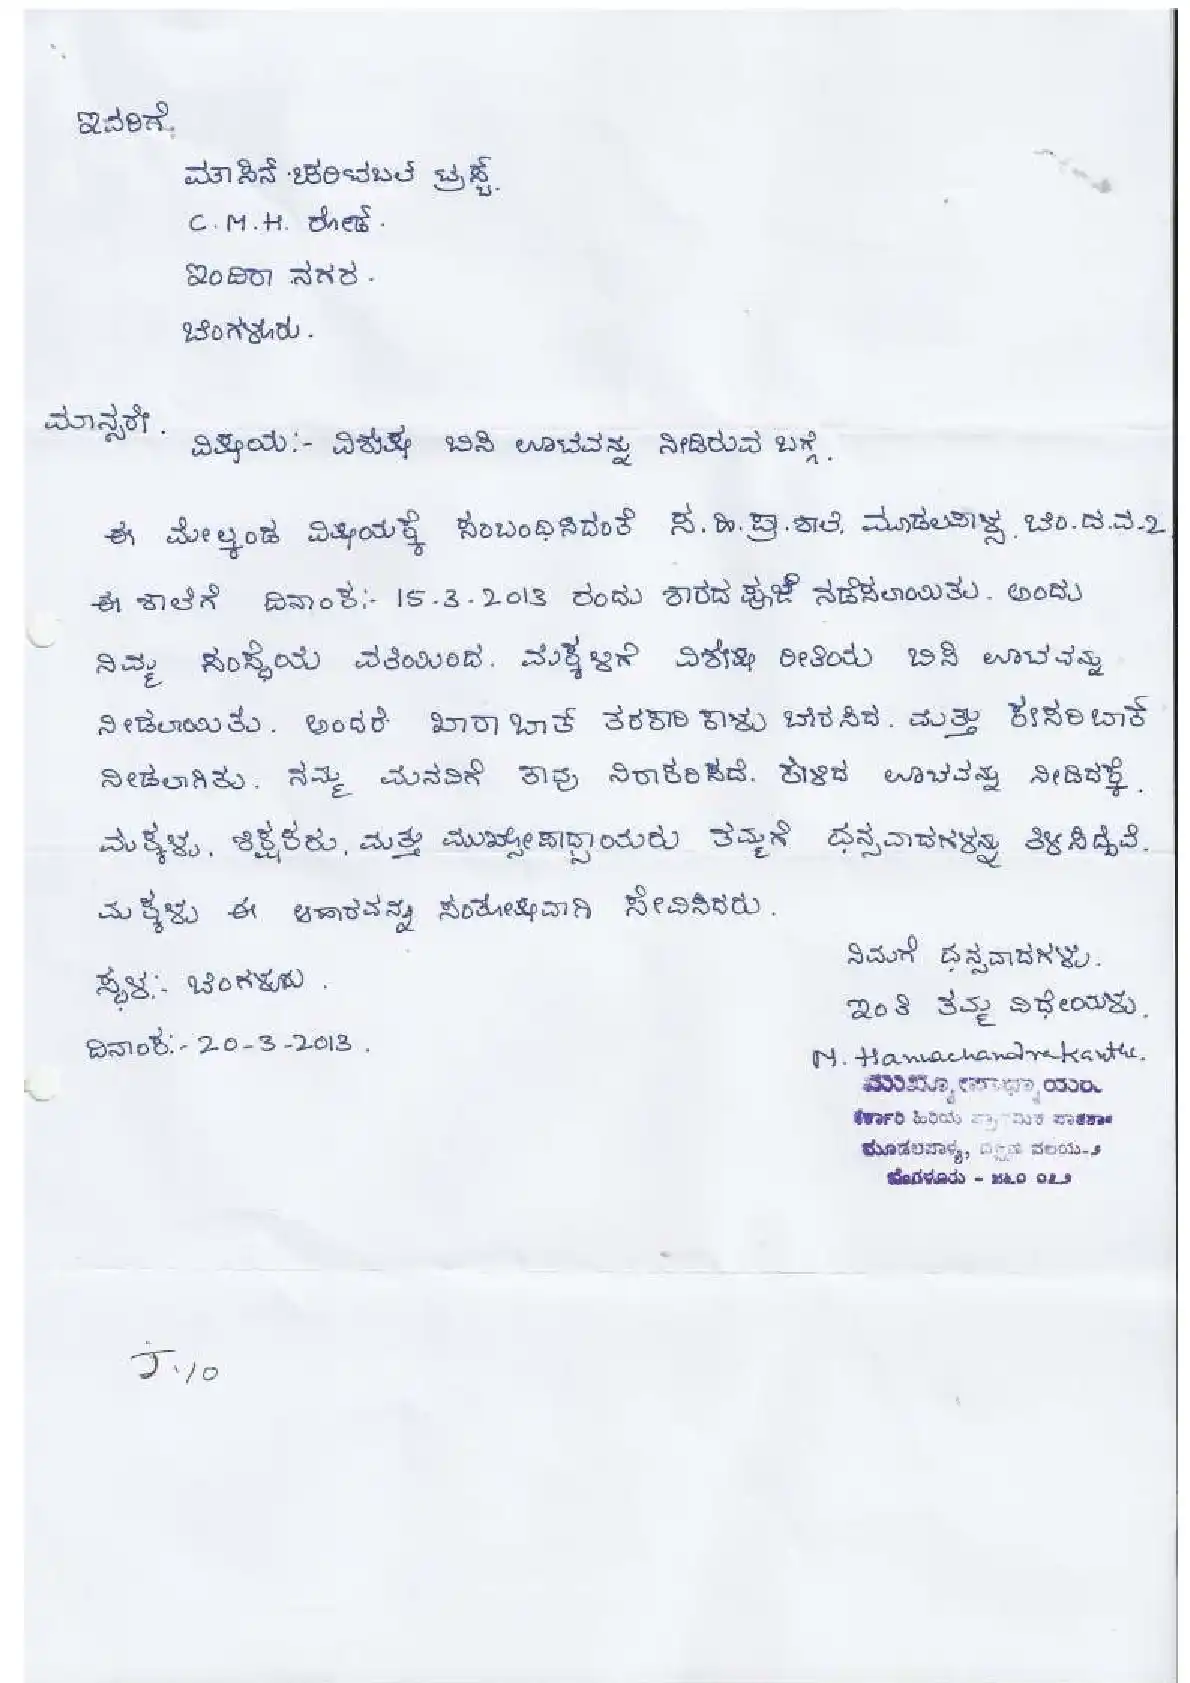 ಇವರಿಗೆ,
ಮಾಸಿನೆ ಚರಿಟಬಲ ಟ್ರಸ್ಟ್.
C.M.H. ರೋಡ್.
ಇಂದಿರಾ ನಗರ.
ಬೆಂಗಳೂರು.
ಮಾನ್ಯರೇ.
ವಿಷಯ:- ವಿಶೇಷ ಬಿಸಿ ಊಟವನ್ನು ನೀಡಿರುವ ಬಗ್ಗೆ.
ಈ ಮೇಲ್ಕಂಡ ವಿಷಯಕ್ಕೆ ಸಂಬಂಧಿಸಿದಂತೆ ಸ.ಹಿ.ಪ್ರಾ.ಶಾಲೆ, ಮೂಡಲಪಾಳ್ಯ. ಬೆಂ.ದ.ವ-2,
ಈ ಶಾಲೆಗೆ ದಿನಾಂಕ:- 15.3.2013 ರಂದು ಶಾರದ ಪೂಜೆ ನಡೆಸಲಾಯಿತು. ಅಂದು
ನಿಮ್ಮ ಸಂಸ್ಥೆಯ ವತಿಯಿಂದ. ಮಕ್ಕಳಿಗೆ ವಿಶೇಷ ರೀತಿಯ ಬಿಸಿ ಊಟವನ್ನು
ನೀಡಲಾಯಿತು. ಅಂದರೆ ಖಾರಾಬಾತ್ ತರಕಾರಿ ಕಾಳು ಬೆರಸಿದ. ಮತ್ತು ಕೇಸರಿಬಾತ್
ನೀಡಲಾಗಿತು. ನಮ್ಮ ಮನವಿಗೆ ತಾವು ನಿರಾಕರಿಸದೆ. ಕೇಳಿದ ಊಟವನ್ನು ನೀಡಿದಕ್ಕೆ.
ಮಕ್ಕಳು, ಶಿಕ್ಷಕರು, ಮತ್ತು ಮುಖ್ಯೋಪಾಧ್ಯಾಯರು ತಮ್ಮಗೆ ಧನ್ಯವಾದಗಳನ್ನು ತಿಳಿಸಿದ್ದೆವೆ.
ಮಕ್ಕಳು ಈ ಆಹಾರವನ್ನು ಸಂತೋಷವಾಗಿ ಸೇವಿಸಿದರು.
ನಿಮಗೆ ಧನ್ಯವಾದಗಳು.
ಸ್ಥಳ:- ಬೆಂಗಳೂರು.
ಇಂತಿ ತಮ್ಮ ವಿಧೇಯಳು.
ದಿನಾಂಕ:- 20-3-2013.
ಮುಖ್ಯೋಪಾಧ್ಯಾಯರು
ಸರ್ಕಾರಿ ಹಿರಿಯ ಪ್ರಾಥಮಿಕ ಪಾಠಶಾಲೆ
ಮೂಡಲಪಾಳ್ಯ, ದಕ್ಷಿಣ ವಲಯ-೨
ಬೆಂಗಳೂರು - ೫೬೦ ೦೭೨
J.10